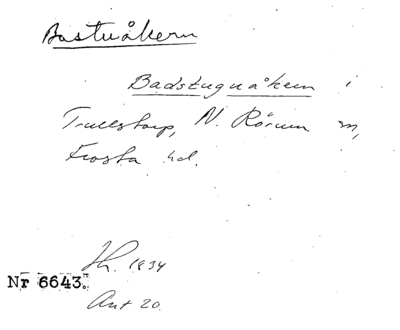 Bastuåkern
Badstuguåkern i
Trullstorp, N. Rörum sn,
Frosta hd.
Lh. 1834
Nr 6643.
Akt 20.